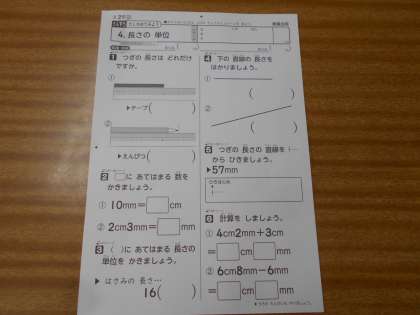 4. 長さの 単位
1 つぎの 長さは どれだけ
ですか。
①
▶テープ( )
②
▶えんぴつ( )
2 □に あてはまる 数を
かきましょう。
① 10mm=□cm
② 2cm3mm=□mm
3 ( )に あてはまる 長さの
単位を かきましょう。
▶ はさみの 長さ…
16( )
4 下の 直線の 長さを
はかりましょう。
①
( )
②
( )
5 つぎの 長さの 直線を
から ひきましょう。
▶57mm
6 計算を しましょう。
① 4cm2mm+3cm
=□cm□mm
② 6cm8mm-6mm
=□cm□mm